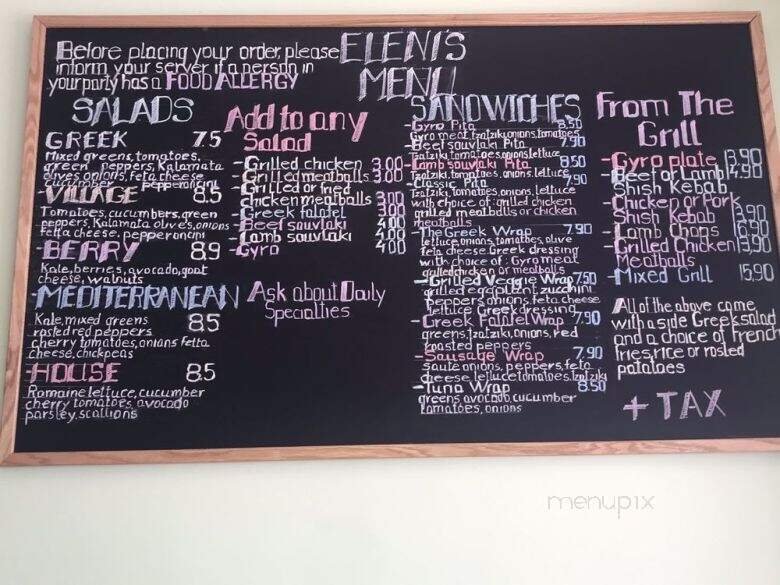 Before placing your order, please
inform your server if a person in
your party has a FOOD ALLERGY
ELENI'S
MENU
SALADS
GREEK 7.5
Mixed greens, tomatoes,
green peppers, Kalamata
olives, onions, feta cheese
cucumber pepperoncini
-VILLAGE 8.5
Tomatoes, cucumbers, green
peppers, Kalamata olives, onions
feta cheese, pepperoncini
-BERRY 8.9
Kale, berries, avocado, goat
cheese, walnuts
-MEDITERRANEAN
Kale, mixed greens 8.5
rosted red peppers
cherry tomatoes, onions fetta
cheese, chickpeas
-HOUSE 8.5
Romaine lettuce, cucumber
cherry tomatoes, avocado
parsley, scallions
Add to any
Salad
-Grilled chicken 3.00
-Grilled meatballs 3.00
-Grilled or fried
chicken meatballs 3.00
-Greek falafel 3.00
-Beef souvlaki 4.00
-Lamb souvlaki 4.00
-Gyro 4.00
Ask about Daily
Specialties
SANDWICHES
-Gyro Pita 8.50
Gyro meat, tzatziki, onions, tomatoes
-Beef souvlaki Pita 7.90
Tzatziki, tomatoes, onions, lettuce
-Lamb souvlaki Pita 8.50
Tzatziki, tomatoes, onions, lettuce
-Classic Pita 7.90
Tzatziki, tomatoes, onions, lettuce
with choice of: grilled chicken
grilled meatballs or chicken
meatballs
-The Greek Wrap 7.90
lettuce, onions, tomatoes, olive
feta cheese, Greek dressing
with choice of: Gyro meat
grilled chicken or meatballs
-Grilled Veggie Wrap 7.50
grilled eggplant, zucchini
peppers, onions, feta cheese
lettuce Greek dressing
-Greek Falafel Wrap 7.90
greens, tzatziki, onions, red
roasted peppers
-Sausage Wrap 7.90
saute onions, peppers, feta
cheese, lettuce, tomatoes, tzatziki
-Tuna Wrap 8.50
greens avocado, cucumber
tomatoes, onions
From The
Grill
-Gyro plate 13.90
-Beef or Lamb 14.90
Shish Kebab
-Chicken or Pork
Shish Kebab 13.90
-Lamb Chops 16.90
-Grilled Chicken 13.90
Meatballs
-Mixed Grill 15.90
All of the above come
with a side Greek salad
and a choice of french
fries, rice or rosted
patatoes
+ TAX
menupix